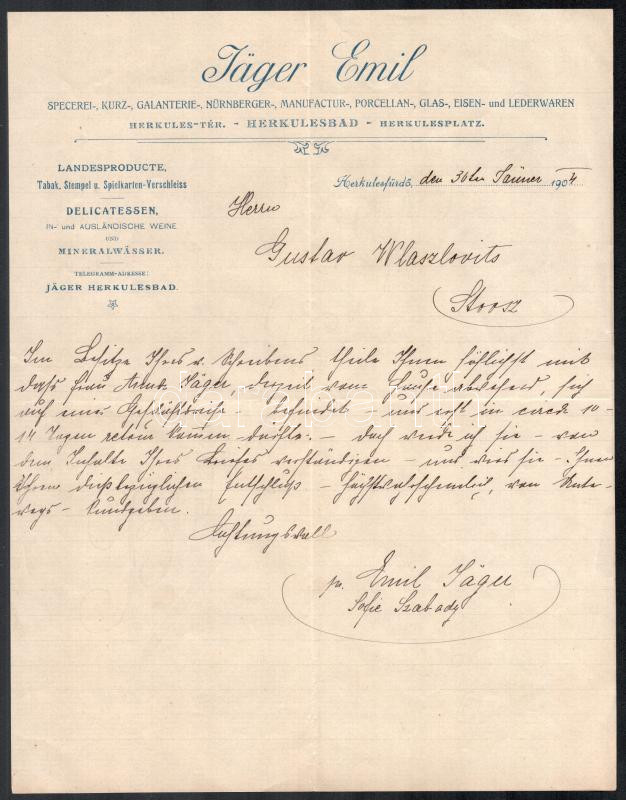 Jäger Emil
SPECEREI-, KURZ-, GALANTERIE-, NÜRNBERGER-, MANUFACTUR-, PORCELLAN-, GLAS-, EISEN- und LEDERWAREN
HERKULES-TÉR. - HERKULESBAD - HERKULESPLATZ.
LANDESPRODUCTE,
Tabak, Stempel u. Spielkarten-Verschleiss
DELICATESSEN,
IN- und AUSLÄNDISCHE WEINE
UND
MINERALWÄSSER.
TELEGRAMM-ADRESSE:
JÄGER HERKULESBAD.
Herkulesfürdő, den 30ten Jänner 1904
Herrn
Gustav Wlaszlovits
Stoosz
Im Besitze Ihres w. Schreibens theile Ihnen höflichst mit
dass Frau Jäger, derzeit vom Hause abwesend, sich
auf einer Geschäftsreise befindet und erst in circa 10-
14 Tagen retour kommen dürfte. - Doch werde ich sie - von
dem Inhalte Ihres Briefes verständigen - und wird sie - Ihnen
Ihren diesbezüglichen Entschluss - höchstwahrscheinlich, von Unter-
wegs - kundgeben.
Achtungsvoll
pr. Emil Jäger
Sofie Szabady